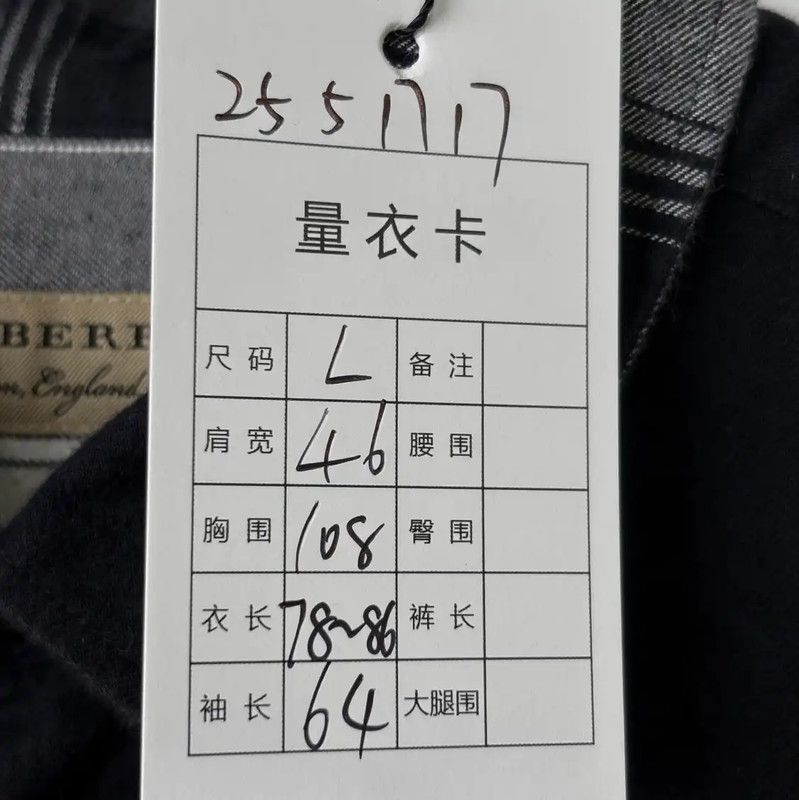 25 5 17 17
量衣卡
BERR
n, England
尺码 L 备注
肩宽 46 腰围
胸围 108 臀围
衣长 78~86 裤长
袖长 64 大腿围